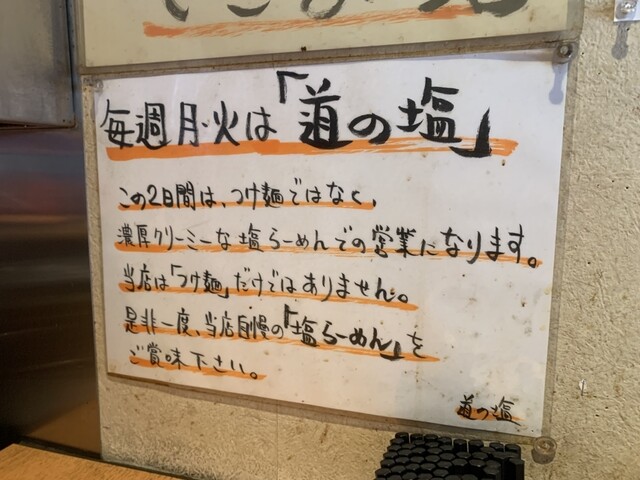 毎週月・火は「道の塩」
この2日間は、つけ麺ではなく、
濃厚クリーミーな塩らーめんでの営業になります。
当店は「つけ麺」だけではありません。
是非一度、当店自慢の「塩らーめん」を
ご賞味下さい。
道の塩